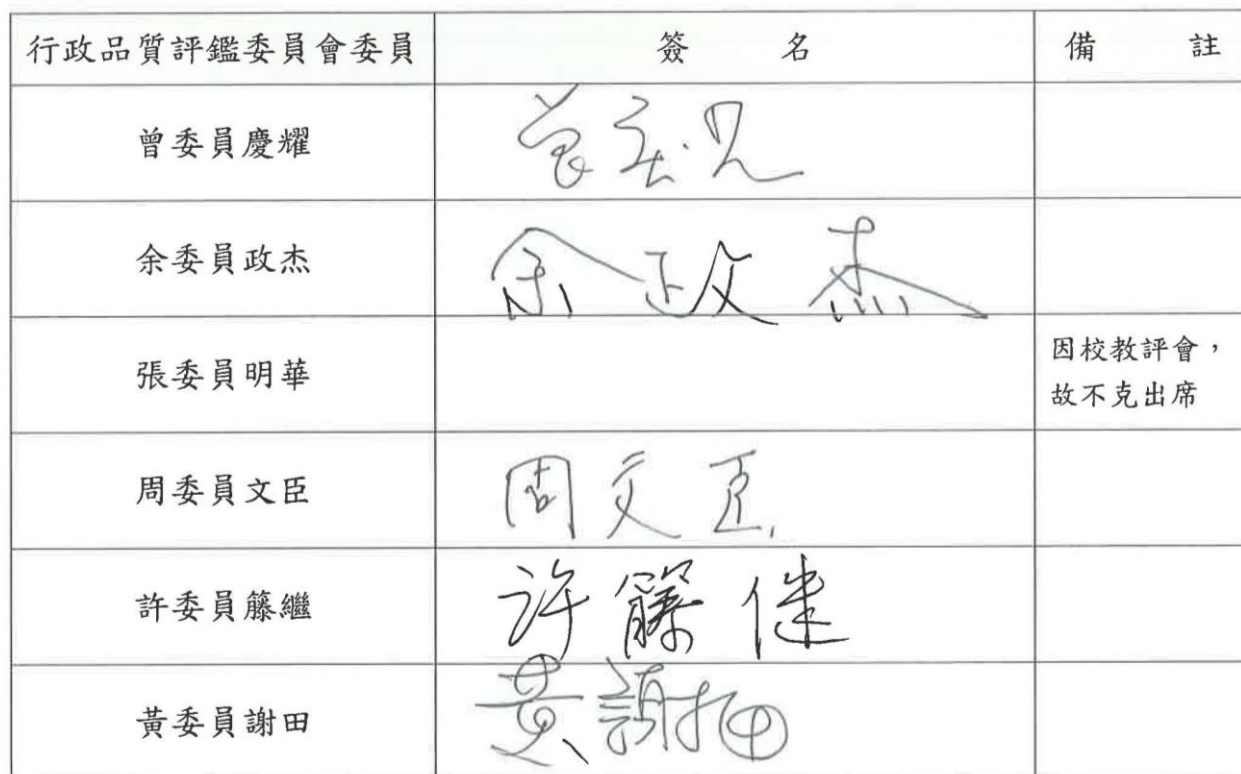 行政品質評鑑委員會委員 簽 名 備 註
曾委員慶耀
余委員政杰 余政杰
張委員明華 因校教評會，
故不克出席
周委員文臣 周文臣
許委員籐繼 許籐継
黃委員謝田 黃謝田